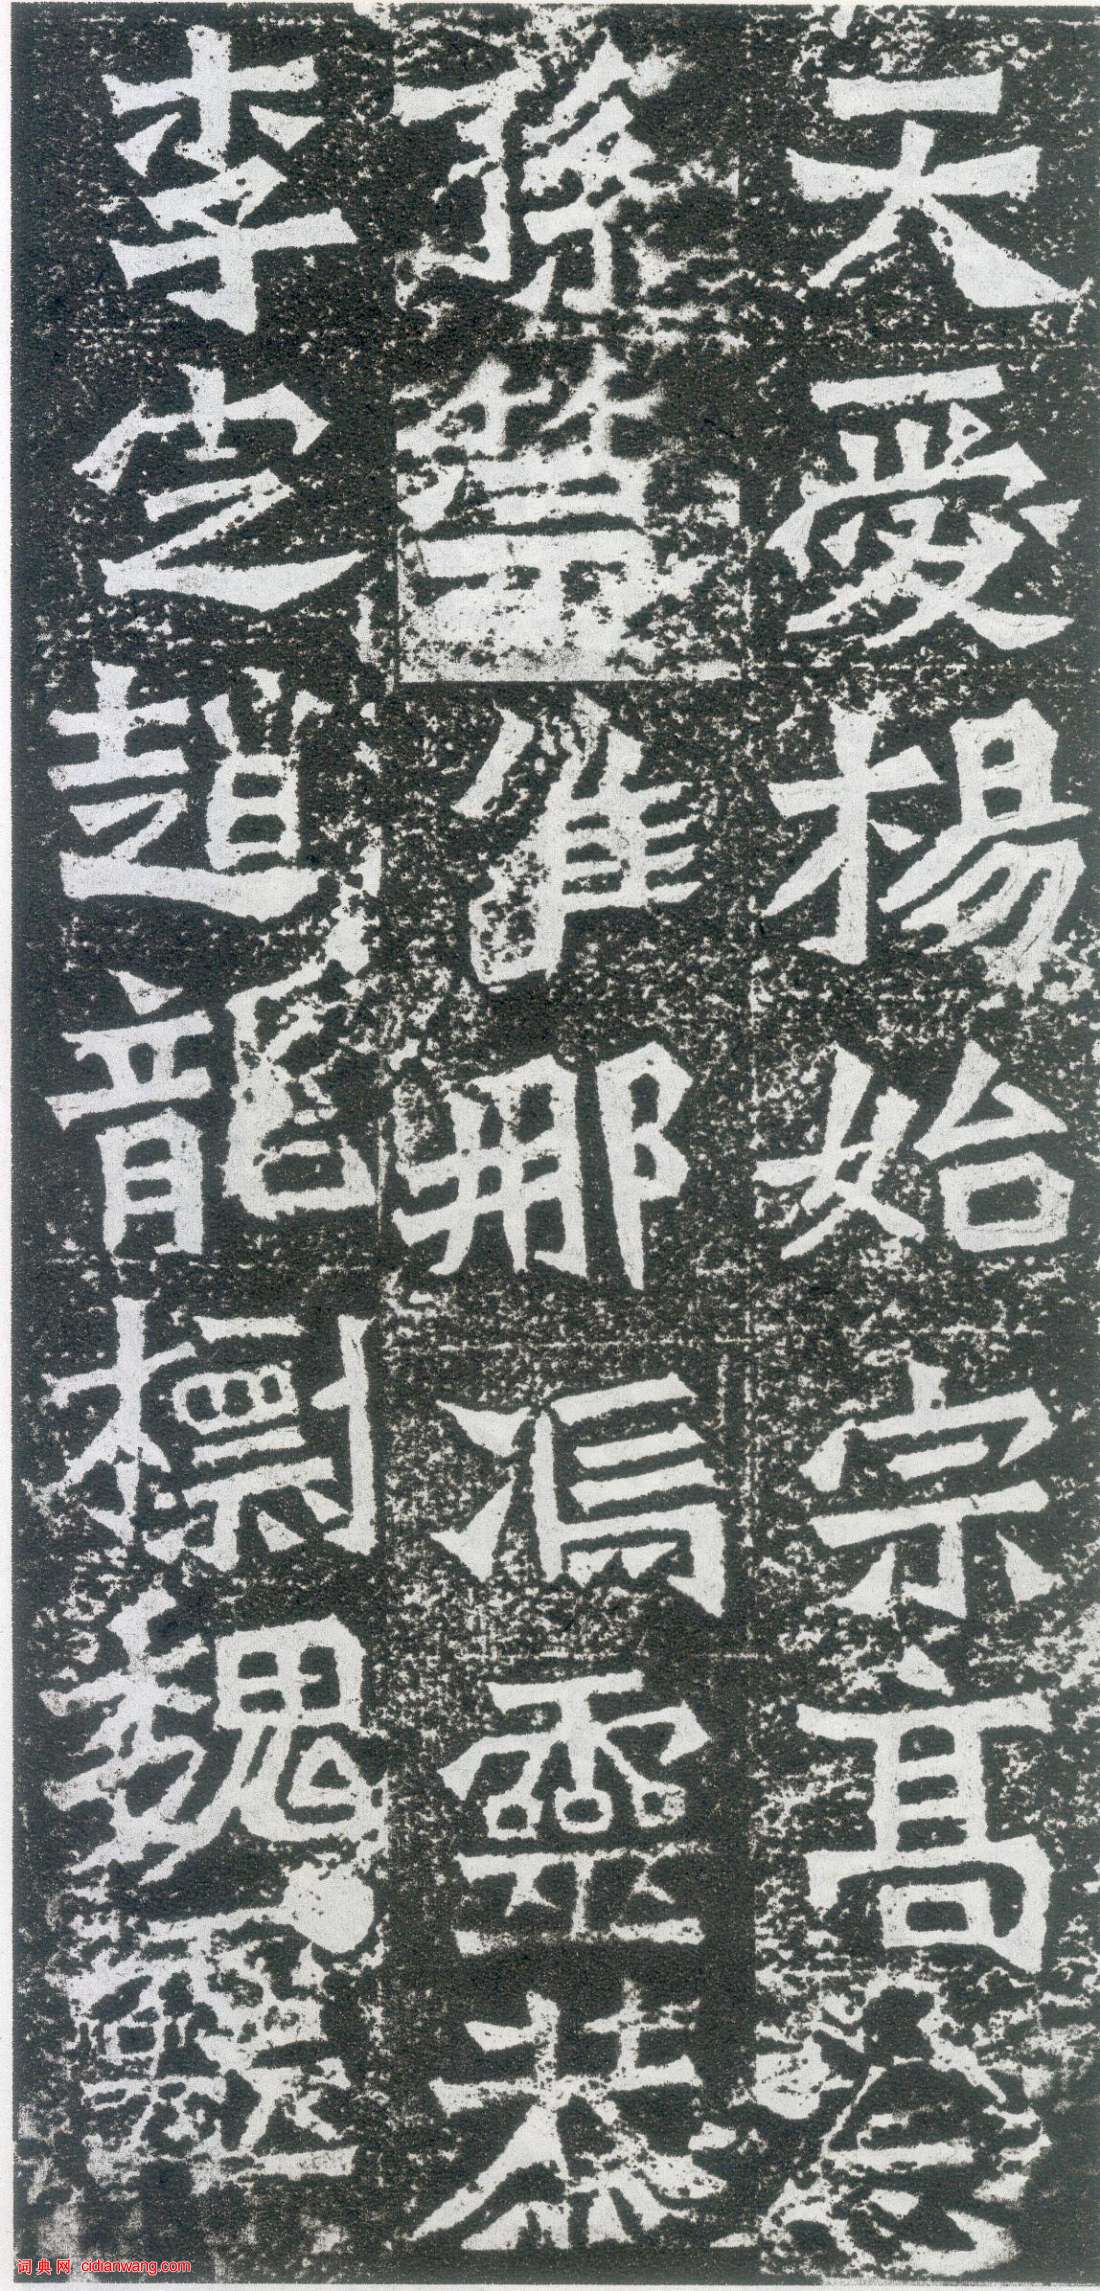 天愛楊始宗高
孫唯那馮靈恭
李定趙龍標魏
词典网 cidianwang.com